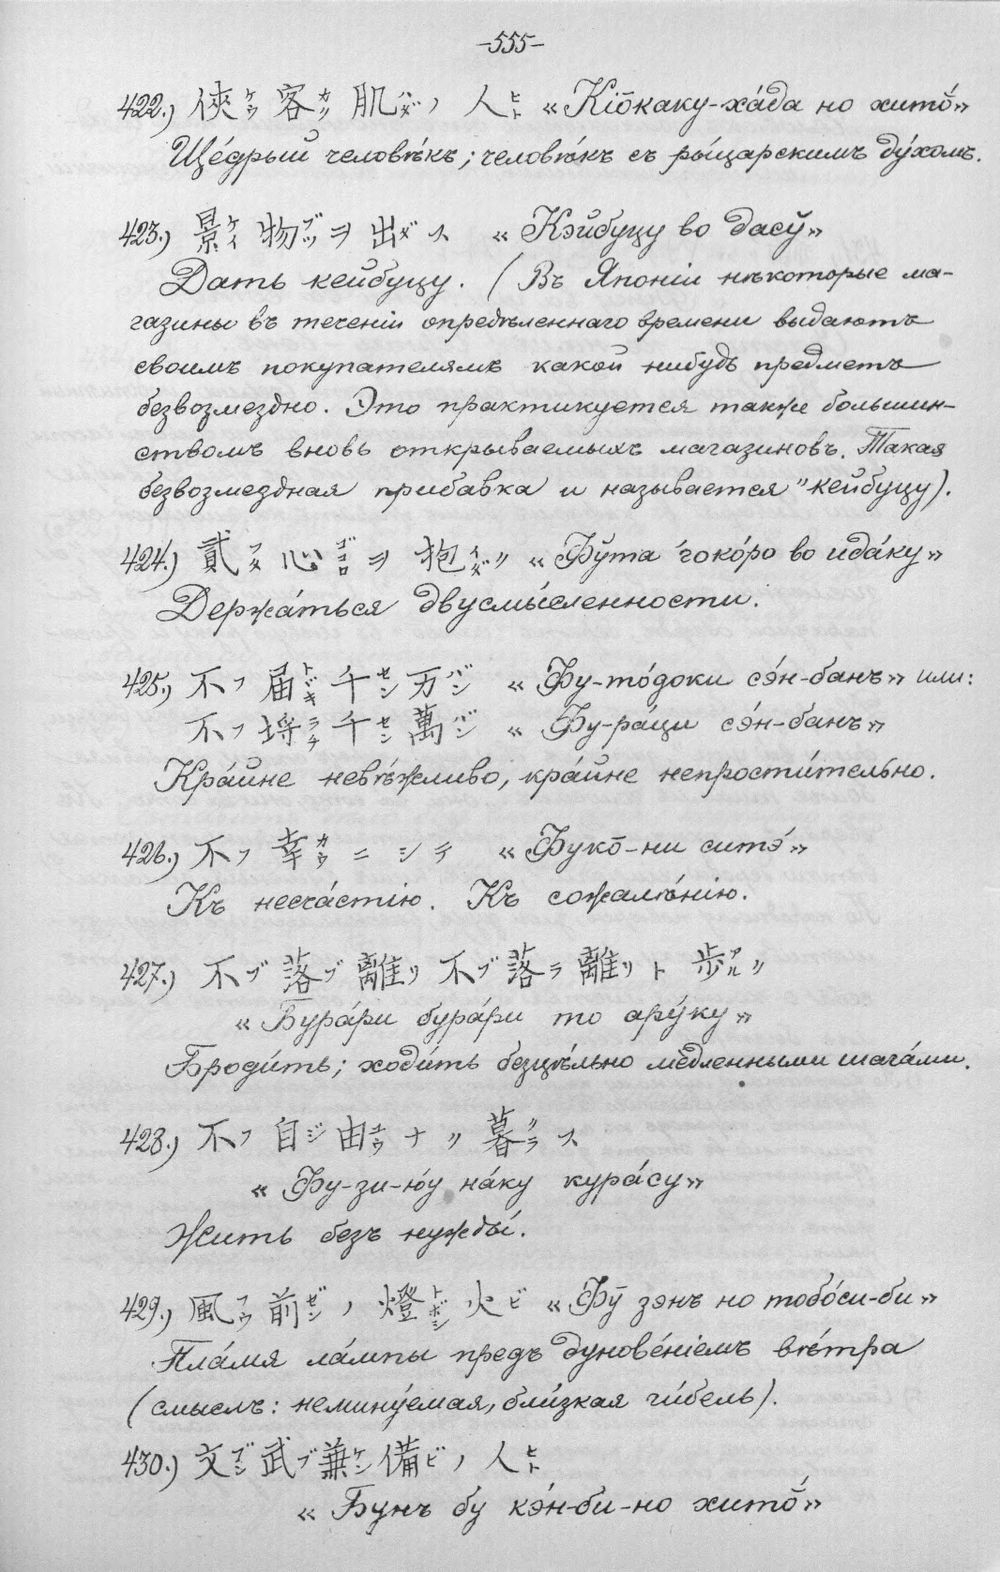 -555-
422.) 俠ケウ 客カク 肌ハダ ノ 人ヒト «Кіо̄каку-ха́да но хито̆»
Ще́дрый человѣкъ; человѣ́къ съ ры́царскимъ ду́хомъ.
423.) 景ケイ 物ブツ ヲ 出ダ ス «Кэйбуцу во дасў»
Дать кейбуцу. (Въ Японіи нѣкоторые ма-
газины въ теченіи опредѣленнаго времени выдаютъ
своимъ покупателямъ какой нибудь предметъ
безвозмездно. Это практикуется также большин-
ствомъ вновь открываемыхъ магазиновъ. Такая
безвозмездная прибавка и называется "кейбуцу).
424.) 貳フタ 心ゴコロ ヲ 抱イダ ク «Фўта гоко́ро во ида́ку»
Держа́ться двусмы́сленности.
425.) 不フ 届トドキ 千セン 万バン «Фу-то́доки сэ́н-банъ» или:
不フ 埒ラチ 千セン 萬バン «Фу-ра́ци сэ́н-банъ»
Кра́йне невѣ́жливо, кра́йне непрости́тельно.
426.) 不フ 幸カウ ニ シテ «Фуко̄-ни ситэ́»
Къ несча́стію. Къ сожалѣ́нію.
427.) 不ブ 落ラ 離リ 不ブ 落ラ 離リ ト 歩アル ク
«Бура́ри бура́ри то ару́ку»
Броди́ть; ходи́ть безцѣ́льно ме́дленными шага́ми.
428.) 不フ 自ジ 由ユウ ナ ク 暮クラ ス
«Фу-зи-ю́у на́ку кура́су»
Жить безъ нужды́.
429.) 風フウ 前ゼン ノ 燈トボシ 火ビ «Фӯ зэнъ но тобо́си-би»
Пла́мя ла́мпы предъ дунове́ніемъ вѣ́тра
(смыслъ: немину́емая, бли́зкая ги́бель).
430.) 文ブン 武ブ 兼ケン 備ビ ノ 人ヒト
«Бунъ бу кэ́н-би-но хито̆»